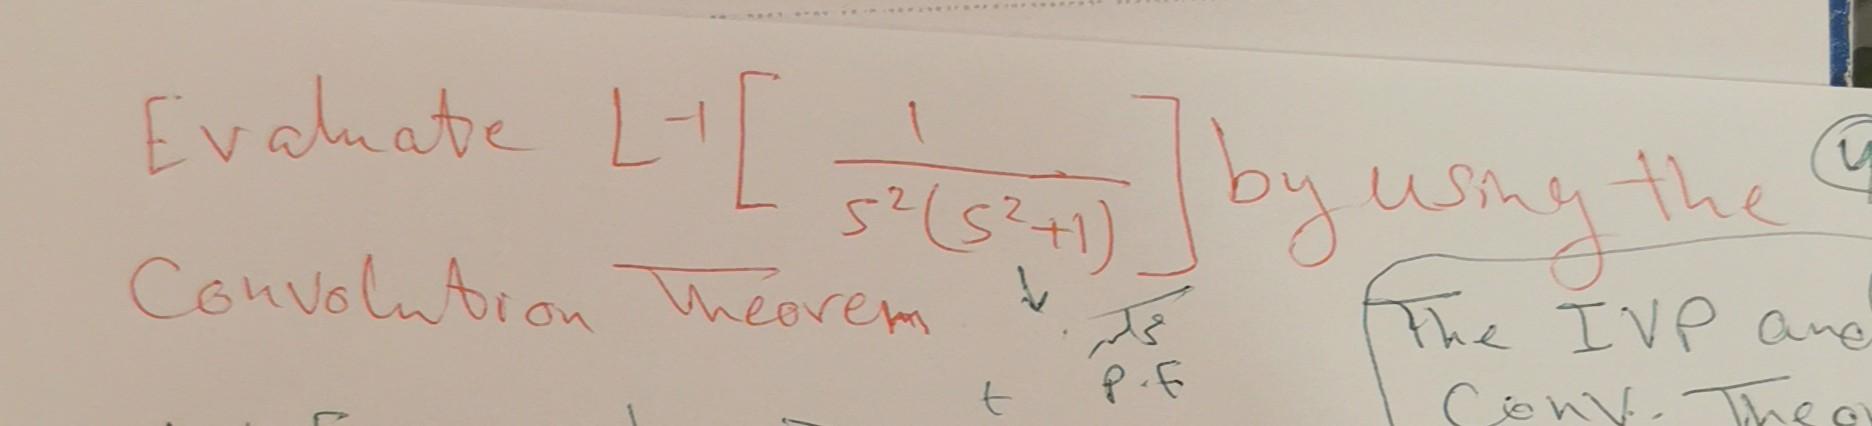 Evaluate L⁻¹[ 1 / s²(s²+1) ] by using the
Convolution Theorem
P.F
t
The IVP and
Conv. Theo